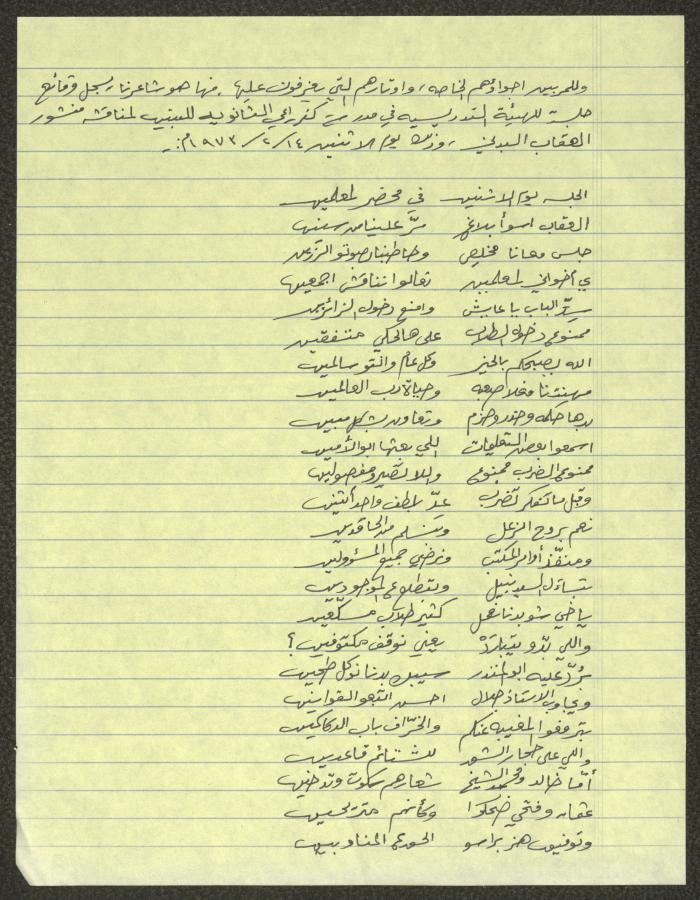 وللمربين اجواؤهم الخاصه، واوتارهم التي يعزفون عليها. فها هو شاعرنا، يسجل وقائع
جلسة للهيئة التدريسيه في مدرسة كفر راعي الثانويه للبنين لمناقشة منشور
العقاب البدني، وذلك يوم الاثنين ١٤/ ٢/ ١٩٧٣م:-
الجلسه يوم الاثنين في محضر المعلمين
العقاب اسوأ بلاغ مرّ علينا من سنين
جلس معانا مخلص وخاطبنا بصوتو الرزين
يا أخواني المعلمين تعالوا نتناقش اجمعين
سدّ الباب يا عايش وامنع دخول الزائرين
ممنوع دخول الطلاب على هالحكي متفقين
الله يصبحكم بالخير وكل عام وانتو سالمين
مهنتنا مهلا صعبه وحياة رب العالمين
بدها حكمه وحذر وحزم وتعاون بشكل مبين
اسمعوا بعض التعليمات اللي بعثها ابو الأمين
ممنوع الضرب ممنوع واللا بتصيرو مفصولين
وقبل ما تفكر تضرب عدّ بلطف واحد اثنين
نعم بروح الزعل وبتسلم من الحاقدين
ومنفّذ أوامر المكتب ونرضي جميع المسؤولين
تساءل السيد نبيل وبتطلع الموجودين
يا خيي شو بدنا نعمل كثير طلاب مسكعين
واللي بدّو يتباراد يعني نوقف مكتوفين؟
بردّ عليه ابو المنذر سيبك بدنا نوكل طحين
وبجاوب الاستاذ جلال احسن اتبعو القوانين
بترفعوا المغيبه عنكم والخرّاف بباب الدكاكين
واللي على حجار السور للشتائم قاعدين
أمّا خالد ومحمد الشيخ شعارهم سكوت وتدخين
عقاب وفتحي ضحكوا وكأنهم مرتحين
وتوفيق هز براسو الحوده المناوبين